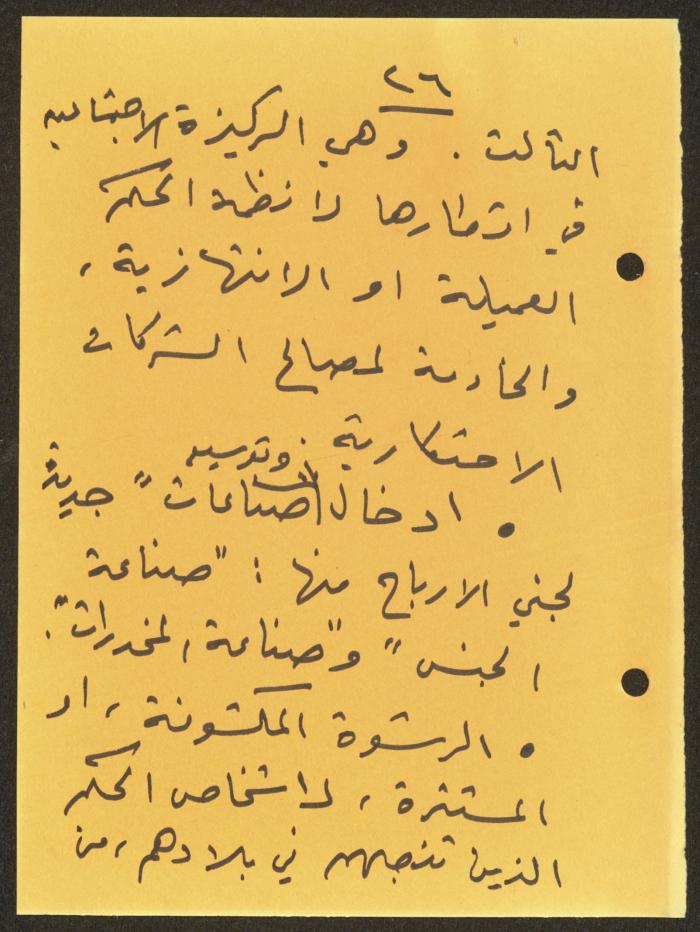 ٢٦
الثالث. وهي الركيزة الاجتماعيه
في اقطارها لانظمة الحكم
العميلة او الانتهازية،
والخادمة لمصالح الشركات
الاحتكارية.
وتوسيع
• ادخال "صناعات" جديدة
لجني الارباح منها: "صناعة
الجنس" و"صناعة المخدرات".
• الرشوة المكشوفة، او
المستترة، لاشخاص الحكم
الذين تنصبهم في بلادهم، من